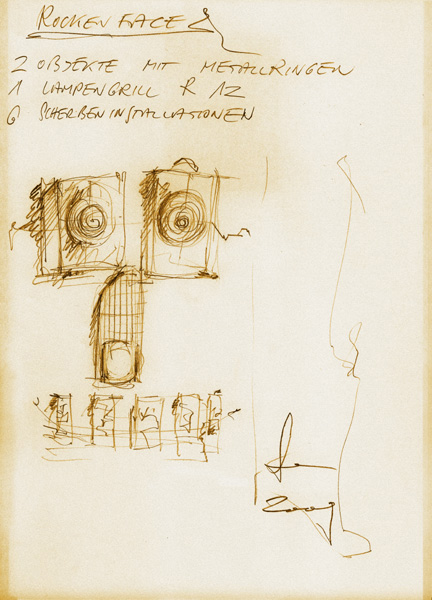 ROCKEN FACE
2 OBJEKTE MIT METALLRINGEN
1 LAMPENGRILL R 12
6 SCHERBENINSTALLATIONEN
2009